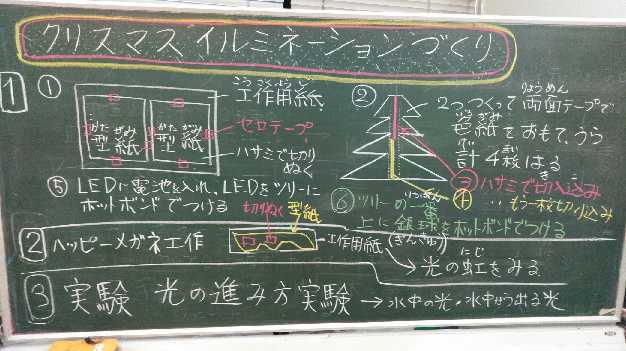 クリスマスイルミネーションづくり
1
①
工作用紙
こうさくようし
型紙
かたがみ
型紙
かたがみ
セロテープ
ハサミで切り
ぬく
②
2つつくって両面テープで
りょうめん
型紙をおもて、うら
計4枚はる
③ハサミで切り込み
④
もう一枚切り込み
⑤LEDに電池を入れ、LEDをツリーに
ホットボンドでつける
⑥ツリーの
上に銀球をホットボンドでつける
2 ハッピーメガネ工作
切りぬく
型紙
工作用紙
→光の虹をみる
にじ
3 実験 光の進み方実験→水中の光・水中から出る光